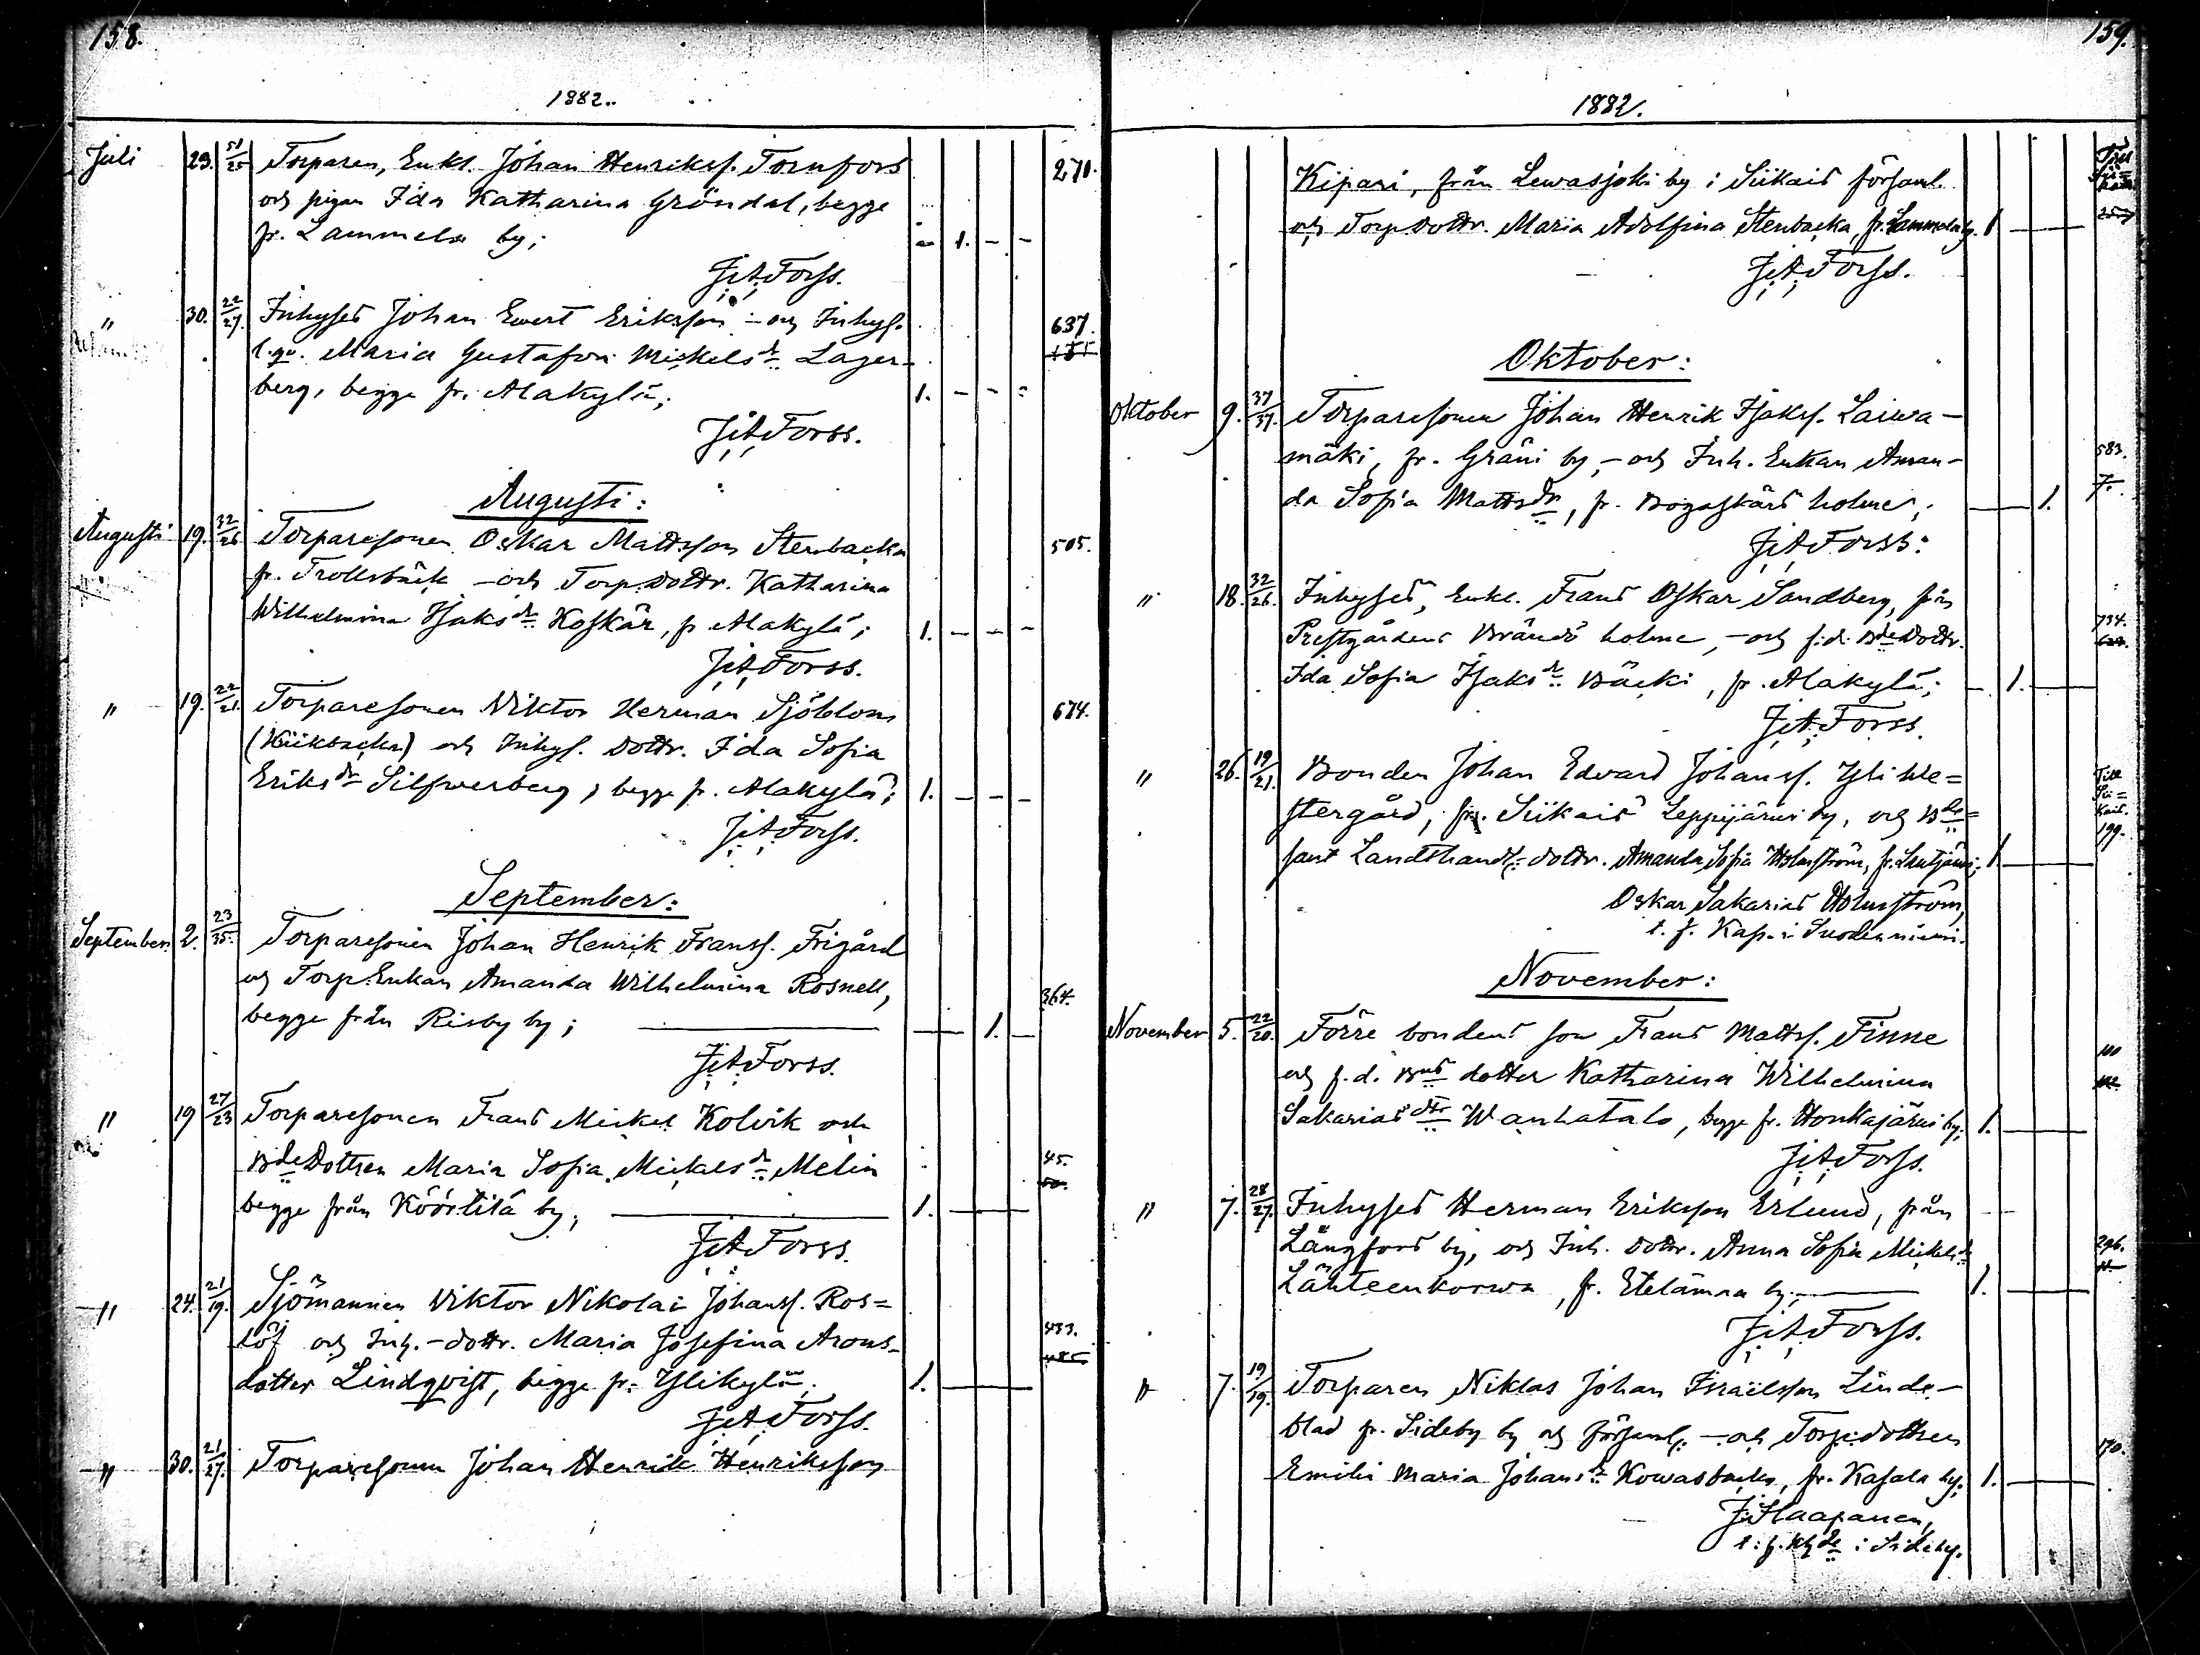 158.
1882.
Juli 29. 51/25 Torparen, Enkl. Johan Henrikss. Tornfors 270.
och pigan Ida Katharina Gröndal, begge
fr. Lammela by; - 1. - -
J. A. Forss.
" 30. 22/27. Inhyses Johan Evert Eriksson - och Inhys. 637.
Maria Gustafva Mickelsdr Lager-
berg, begge fr. Alakylä; 1. - - -
J. A. Forss.
Augusti:
Augusti 19. 32/26 Torparesonen Oskar Mattsson Stenbacka 505.
fr. Trollsbäck - och Torp. dottr. Katharina
Wilhelmina Isaksdr Koskär, fr Alakylä; 1. - - -
J. A. Forss.
" 19. 22/21. Torparesonen Viktor Herman Sjöblom 674.
och Inhys. dottr. Ida Sofia
Eriksdr Silfverberg, begge fr. Alakylä; 1. - - -
J. A. Forss.
September:
September 2. 23/35. Torparesonen Johan Henrik Franss. Frigård
och Torp. Enkan Amanda Wilhelmina Rosnell, 364.
begge från Risby by; 1.
J. A. Forss.
" 19 27/23 Torparesonen Frans Mickel Kolvik och
Bdedottren Maria Sofia Mickelsdr Melin 45.
begge från Köörtilä by; 1.
J. A. Forss.
" 24. 21/19. Sjömannen Viktor Nikolai Johanss. Ros=
löf och Inh.-dottr. Maria Josefina Arons- 433.
dotter Lindqvist, begge fr. Ylikylä; 1.
J. A. Forss.
" 30. 21/27. Torparesonen Johan Henrik Henriksson
159.
1882.
Kipari, från Lewasjoki by i Siikais församl.
och Torp. dottr. Maria Adolfina Stenbacka, fr. Lammela by. 1
J. A. Forss.
Oktober:
Oktober 9. 37/37. Torparesonen Johan Henrik Isakss. Laiwa-
mäki, fr. Gräni by, - och Inh. Enkan Aman- 583.
da Sofia Mattsdr, fr. Bogaskärs holme; 1.
J. A. Forss.
" 18. 32/26. Inhyses, Enkl. Frans Oskar Sandberg, från
Prestgårdens Brändö holme, - och f.d. Bdedottr. 734.
Ida Sofia Isaksdr Bäcki, fr. Alakylä; 1.
J. A. Forss.
" 26. 19/21. Bonden Johan Edvard Johanss. Yli We= Till
stergård, fr. Siikais Leppijärvi by, och Sii=
Landthandl. dottr. Amanda Sofia Holmström, 1 199.
Oskar Sakarias Holmström,
t. f. Kap. i Suodenniemi.
November:
November 5. 22/20. Förre bondens son Frans Mattss. Finne
och f.d. Bds dotter Katharina Wilhelmina
Sakariasdtr Wanhatalo, begge fr. Honkajärvi by; 1.
J. A. Forss.
" 7. 28/27. Inhyses Herman Eriksson Erlund, från
Långfors by, och Inh. dottr. Anna Sofia Mickelsdr 296.
Lähteenkorwa, fr. Etelämaa by; 1.
J. A. Forss.
" 7. 19/19. Torparen Niklas Johan Israelsson Linde-
blad fr. Sideby by och församl. - och Torp. dottren 170.
Emili Maria Johansdr Kowasbacka, fr. Kasala by. 1.
J. Haapanen,
i Sideby.